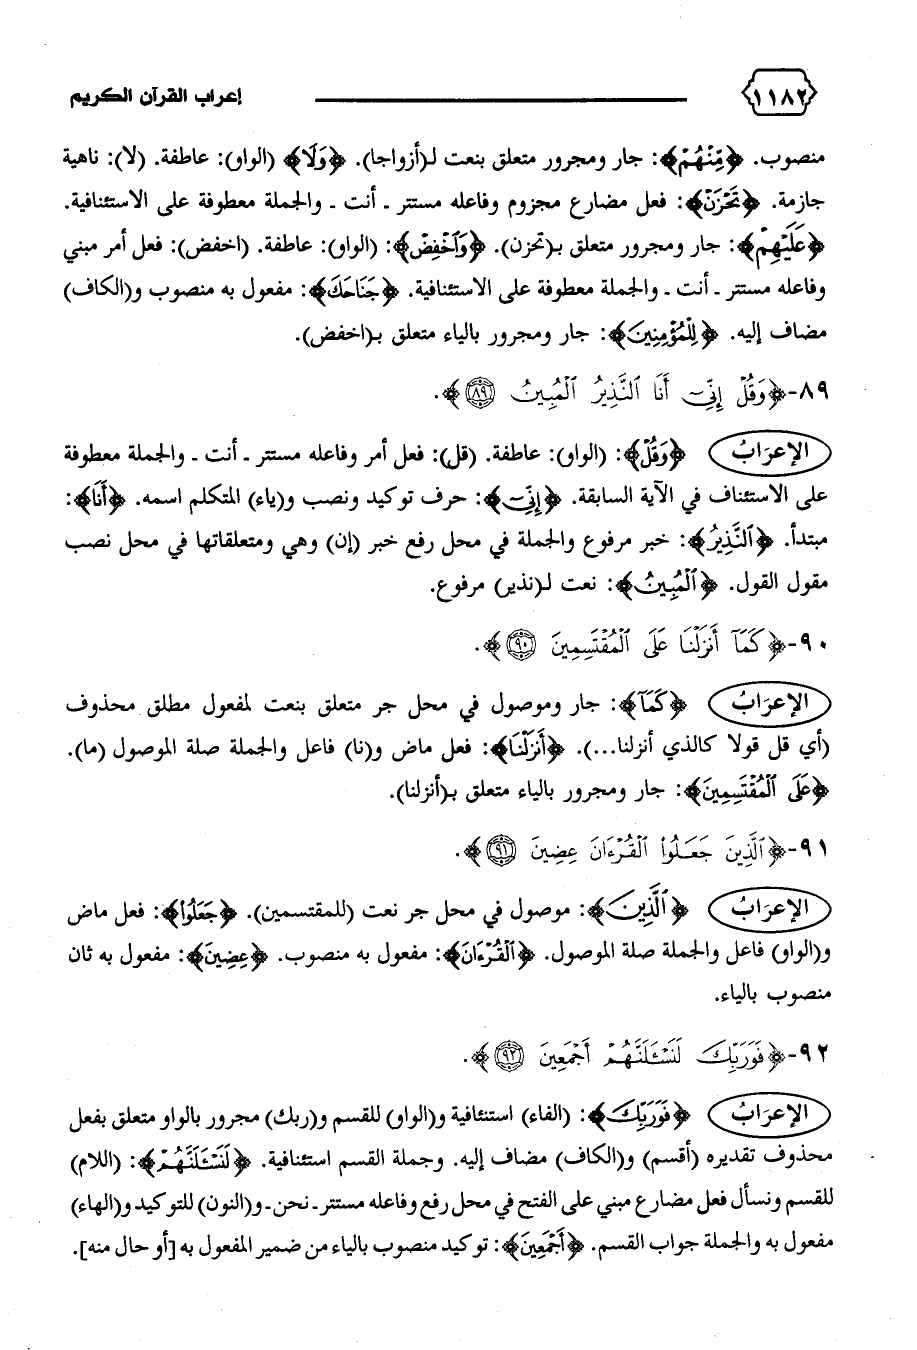 ١١٨٢ إعراب القرآن الكريم
منصوب. ﴿مِّنْهُمْ﴾: جار ومجرور متعلق بنعت لـ(أزواجا). ﴿وَلَا﴾ (الواو): عاطفة. (لا): ناهية
جازمة. ﴿تَحْزَنْ﴾: فعل مضارع مجزوم وفاعله مستتر ـ أنت ـ والجملة معطوفة على الاستئنافية.
﴿عَلَيْهِمْ﴾: جار ومجرور متعلق بـ(تحزن). ﴿وَٱخْفِضْ﴾: (الواو): عاطفة. (اخفض): فعل أمر مبني
وفاعله مستتر ـ أنت ـ والجملة معطوفة على الاستئنافية. ﴿جَنَاحَكَ﴾: مفعول به منصوب و(الكاف)
مضاف إليه. ﴿لِلْمُؤْمِنِينَ﴾: جار ومجرور بالياء متعلق بـ(اخفض).
٨٩-﴿وَقُلْ إِنِّىٓ أَنَا ٱلنَّذِيرُ ٱلْمُبِينُ ٨٩﴾.
الإعرَابُ ﴿وَقُلْ﴾: (الواو): عاطفة. (قل): فعل أمر وفاعله مستتر ـ أنت ـ والجملة معطوفة
على الاستئناف في الآية السابقة. ﴿إِنِّىٓ﴾: حرف توكيد ونصب و(ياء) المتكلم اسمه. ﴿أَنَا﴾:
مبتدأ. ﴿ٱلنَّذِيرُ﴾: خبر مرفوع والجملة في محل رفع خبر (إن) وهي ومتعلقاتها في محل نصب
مقول القول. ﴿ٱلْمُبِينُ﴾: نعت لـ(نذير) مرفوع.
٩٠-﴿كَمَآ أَنزَلْنَا عَلَى ٱلْمُقْتَسِمِينَ ٩٠﴾.
الإعرَابُ ﴿كَمَآ﴾: جار وموصول في محل جر متعلق بنعت لمفعول مطلق محذوف
(أي قل قولا كالذي أنزلنا...). ﴿أَنزَلْنَا﴾: فعل ماض و(نا) فاعل والجملة صلة الموصول (ما).
﴿عَلَى ٱلْمُقْتَسِمِينَ﴾: جار ومجرور بالياء متعلق بـ(أنزلنا).
٩١-﴿ٱلَّذِينَ جَعَلُوا۟ ٱلْقُرْءَانَ عِضِينَ ٩١﴾.
الإعرَابُ ﴿ٱلَّذِينَ﴾: موصول في محل جر نعت (للمقتسمين). ﴿جَعَلُوا۟﴾: فعل ماض
و(الواو) فاعل والجملة صلة الموصول. ﴿ٱلْقُرْءَانَ﴾: مفعول به منصوب. ﴿عِضِينَ﴾: مفعول به ثان
منصوب بالياء.
٩٢-﴿فَوَرَبِّكَ لَنَسْـَٔلَنَّهُمْ أَجْمَعِينَ ٩٢﴾.
الإعرَابُ ﴿فَوَرَبِّكَ﴾: (الفاء) استنئافية و(الواو) للقسم و(ربك) مجرور بالواو متعلق بفعل
محذوف تقديره (أقسم) و(الكاف) مضاف إليه. وجملة القسم استئنافية. ﴿لَنَسْـَٔلَنَّهُمْ﴾: (اللام)
للقسم ونسأل فعل مضارع مبني على الفتح في محل رفع وفاعله مستتر ـ نحن ـ و(النون) للتوكيد و(الهاء)
مفعول به والجملة جواب القسم. ﴿أَجْمَعِينَ﴾: توكيد منصوب بالياء من ضمير المفعول به [أو حال منه].